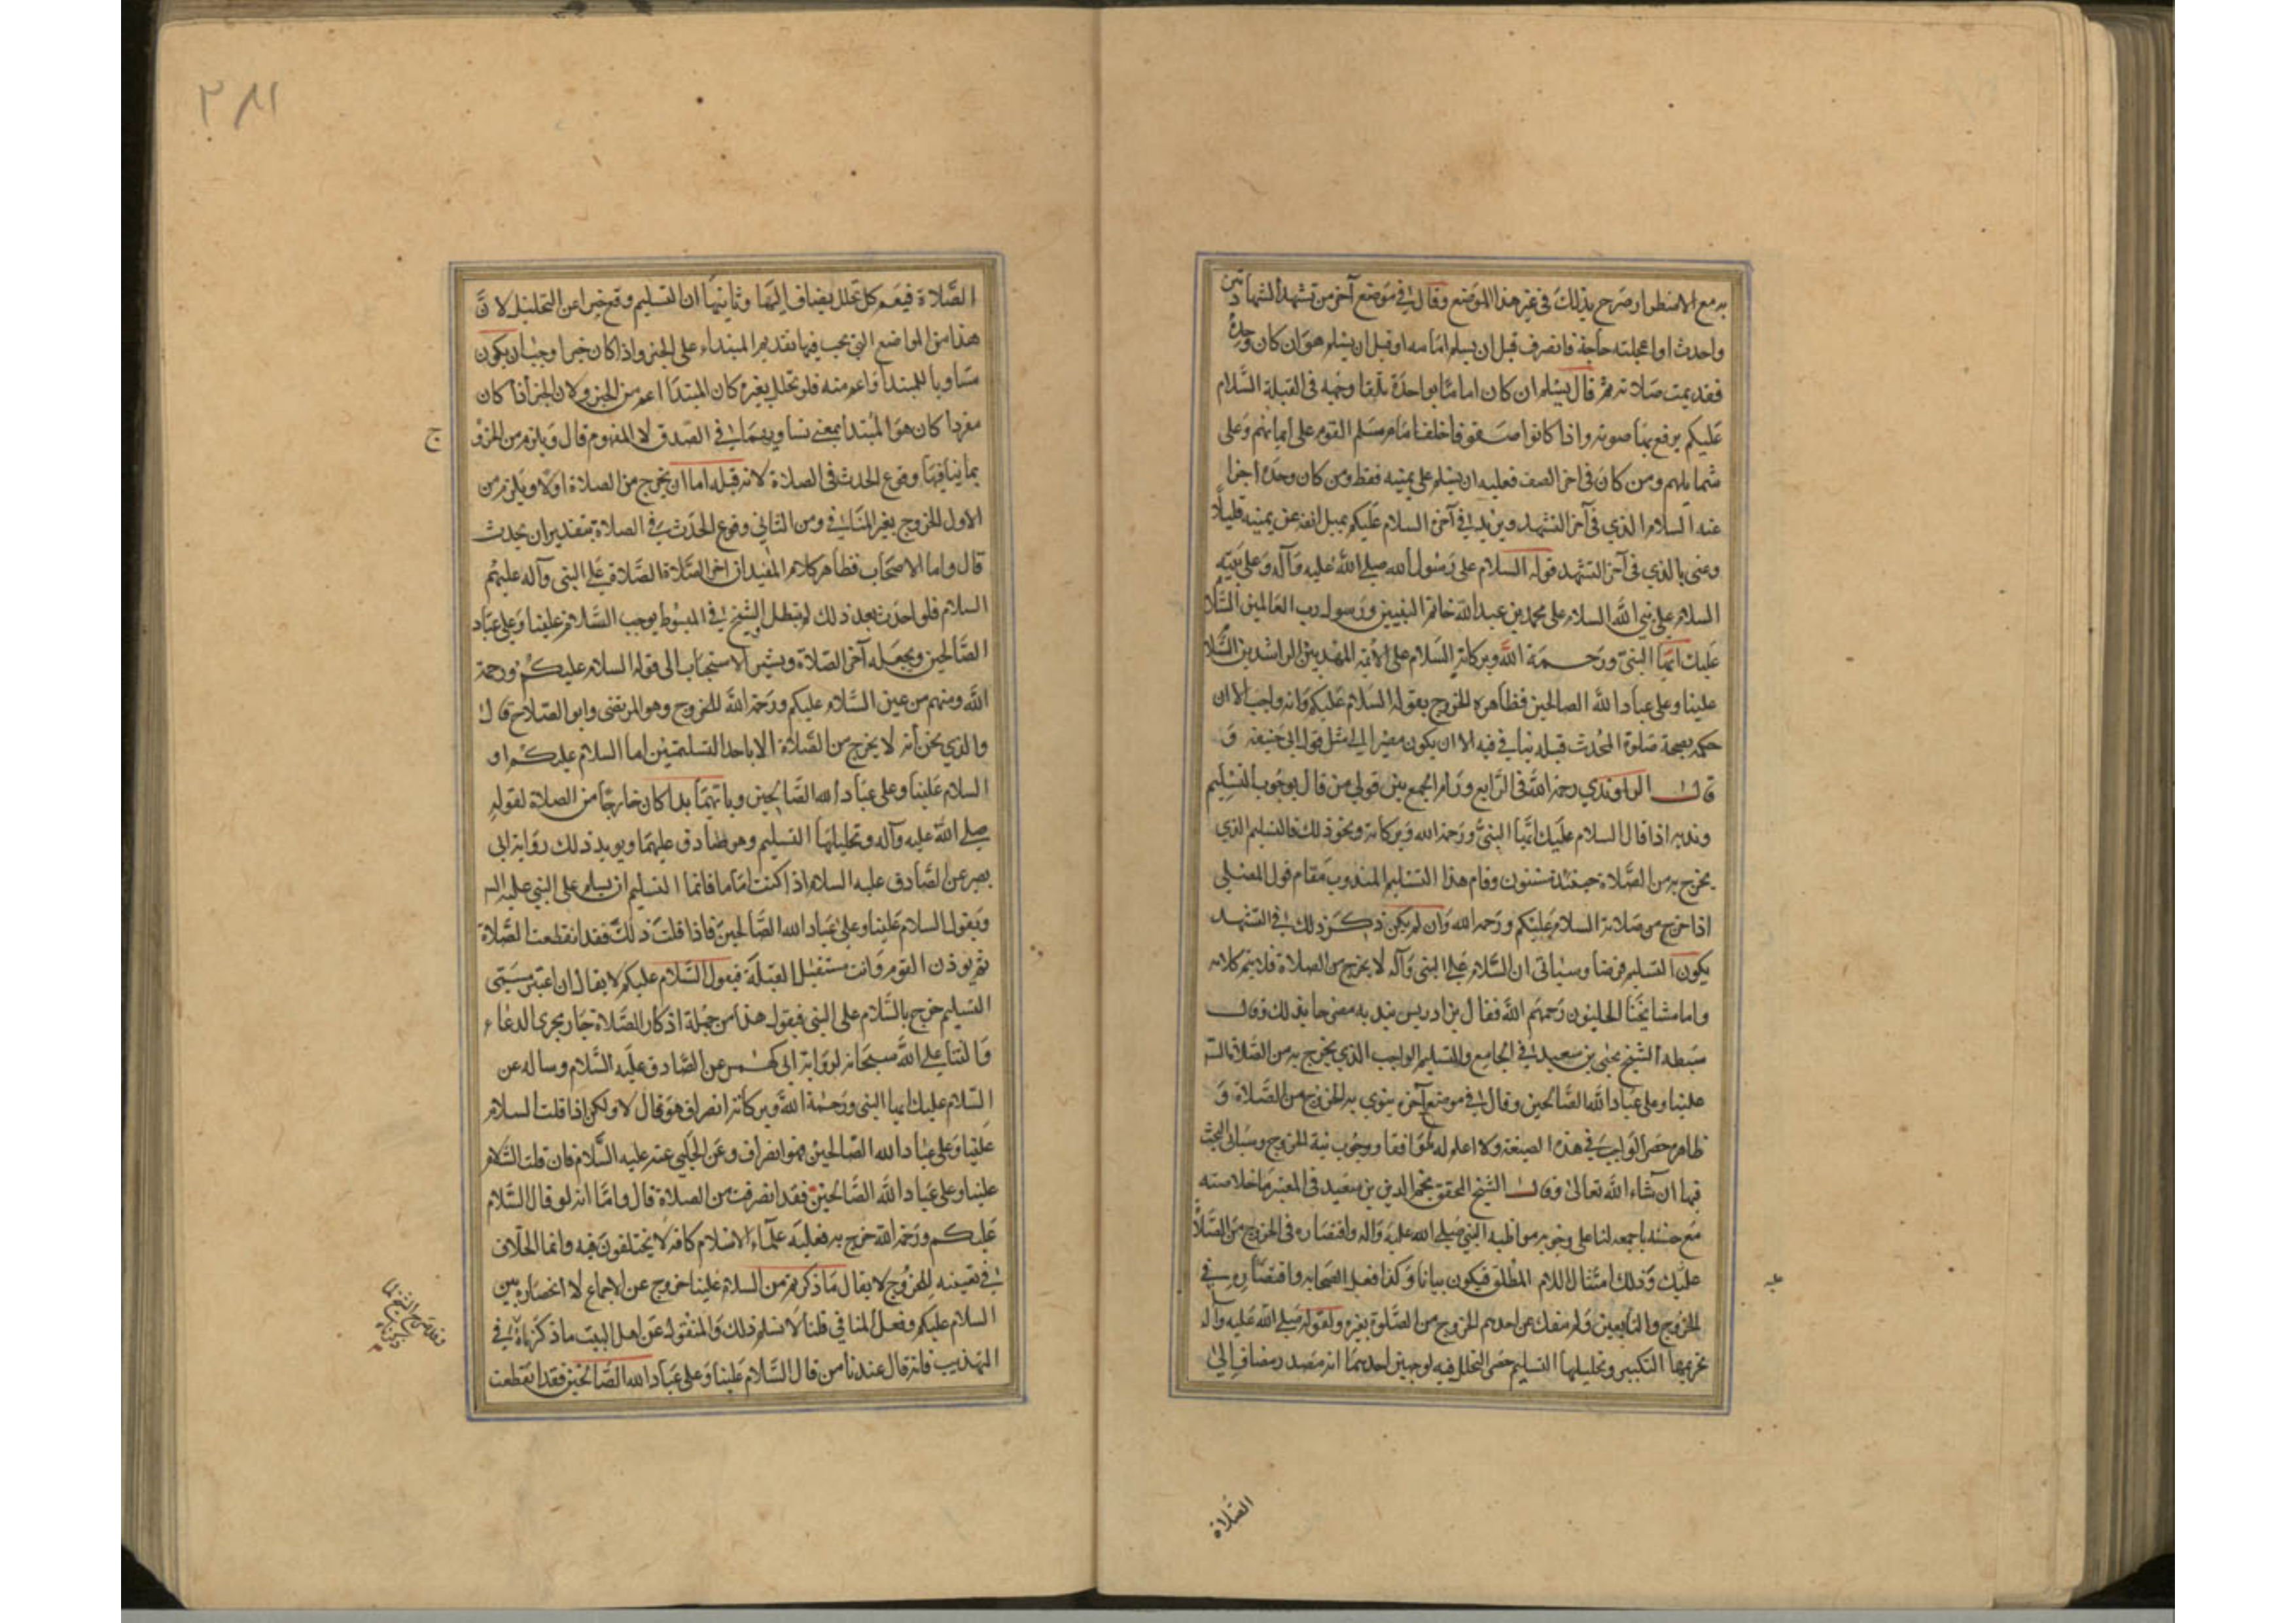 به مع الاضطرار وصرح بذلك في غير هذا الموضع وقال في موضع آخر من تشهد الشهادتين
واحدث او اعجلته حاجة فانصرف قبل ان يسلم امامه او قبل ان يسلم هو ان كان وحده
فقد تمت صلاته ثم قال يسلم ان كان اماما بواحدة تلقا وجهه في القبلة السَّلام
عَليكم يرفع بها صوته واذا كانوا صفوفا خلف امام سلم القوم على ايمانهم وَعلى
شمايلهم ومن كان في اخر الصف فعليه ان يسلم على يمينه فقط ومن كان وحده اجزا
عنه السلام الذي في آخر التشهد ويزيد في آخره السلام عَليكم يميل انفه عن يمينه قليلًا
وعنى بالذي في آخر التشهد قوله السلام على رَسُول الله صلى الله عليه وَآله وَعلى
السلام على نبي الله السلام على محمد بن عبد الله خاتم النبيين ورسول رب العالمين السَّلام
عَليك ايّها النبي ورَحمة الله وبركاته السَلام على الائمة المهديين الراشدين السَّلام
علينا وعلى عباد الله الصالحين فظاهره الخروج بقوله السَلام عَليكم وَانه واجب الا ان
حكمه بصحة صلوة المحدث قبله ينافي فيه الا ان يكون مصيرا الى مثل قول ابي حنيفة وَ
قال الراوندي رحمه الله في الرايع ورام الجمع بين قولي من قال بوجوب التسليم
وندبه اذا قال السلام عَليك ايّها النبيُّ ورَحمة الله وَبركاته ونحو ذلك فالتسليم الذي
يخرج به من الصَّلاة حينئذ مسنون وقام هذا التسليم المندوب مَقام قول المصلي
اذا خرج من صَلاته السلام عَليكم ورَحمه الله وَان لم يكن ذكر ذلك في التشهد
يكون التسليم فرضا وسياتي ان السَّلام عَلى النبي وَآله لا يخرج من الصلاة فلا يتم كلامه
واما مشايخنا الحليون رَحمهم الله فقال بن ادريس بندبه مضى حا بذلك وقال
سبطه الشيخ يحيى بن سعيد في الجامع والتسليم الواجب الذي يخرج به من الصَّلاة السَّ
علينا وعلى عبَاد الله الصَّالحين وقال في موضع آخر ينوي به الخروج من الصَّلاة وَ
ظاهره حصر الواجب في هذه الصيغة ولا اعلم له مُوافقا ووجُوب نية الخروج وسياتي البحث
فيها ان شاء الله تعالى وقال الشيخ المحقق نجم الدين بن سعيد في المعتبر ما خلاصته
مَع حسنه باجمعه لنا على وجوبه مواظبة النبي صَلى الله عَليه وَاله واقتصاره في الخروج من الصَّلاة
عليه وَذلك امتثال للام المطلق فيكون بيانا وَكذا فعل الصَحابه واقتصاره في
الخروج والتابعين وَلم ينقل عن احدهم الخروج من الصَّلوة بغيره ولقوله صَلى الله عَليه وآله
تحريمها التكبير وتحليلها التسليم حصر التحلل فيه لوجهين احدهما انه مصدر مضاف الى
الصّلاة
٢٨١
الصَّلاة فيعم كل تحلل يضاف اليها وثانيها ان التسليم وقع خبرا عن التحليل لانَّ
هذا من المواضع التي يجب فيها تقدير المبتداء على الخبر واذا كان خبرا وجب ان يكون
مساويا للمبتدأ او اعم منه فلو تحلل بغيره كان المبتدأ اعم من الخبر ولان الخبر اذا كان
مفردا كان هو المبتدأ بمعنى تساويهما في الصدق لا المفهوم قال وَيلزم من الخروج
بما ينافيها وقوع الحدث في الصلاة لانه قبله اما ان يخرج من الصلاة اولا ويلزم من
الاول الخروج بغير المنافي ومن الثاني وقوع الحدث في الصلاة بتقدير ان يحدث
قال واما الاصحَاب فظاهر كلام المفيد ان اخر الصَّلاة الصَّلاة عَلى النبي وآله عليهم
السلام فلو احدث بعد ذلك لم تبطل والشيخ في المبسُوط يوجب السَّلام علينا وَعلى عباد
الصَّالحين ويجعله آخر الصَّلاة ويشير بالاستحباب الى قوله السلام عليكم ورحمة
الله ومنهم من عين السَّلام عليكم ورَحمة الله للخروج وهو المرتضى وابو الصلاح قال
والذي نحن أنه لا يخرج من الصَّلاة الا باحد التسليمتين اما السلام عليكم او
السلام عَلينا وعلى عبَاد الله الصَّالحين وبايّهما بدا كان خارجًا من الصلاة لقوله
صلى الله عليه وآله وتحليلها التسليم وهو صَادق عليهما ويويد ذلك رواية ابي
بصير عن الصَّادق عليه السلام اذا كنت امَاما فانما التسليم ان تسلم على النبي عليه السـ
وَتقول السلام عَلينا وعلى عبَاد الله الصَّالحين فاذا قلت ذلك فقد انقطعت الصَّلاة
ثم يوذن القوم وَانت مستقبل القبلة فيقول السَّلام عليكم لا يقال ان اعتبر مسَمّى
التسليم خرج بالسَّلام على النبي فيقول هذا من جملة اذكار الصَّلاة جار مجرى الدعاء
وَالثناء على الله سبحَانه لروَاية ابي كهمس عن الصَّادق عَليه السَّلام وساله عن
السَّلام عليك ايها النبي ورَحمة الله وبركاته انصراف هو فقال لا ولكن اذا قلت السلام
علينا وَعلى عبَاد الله الصَّالحين فهو انصراف وعَن الحَلبي عنه عليه السَّلام فان قلت السَّلام
علينا وعلى عبَاد الله الصَّالحين فقد انصرفت من الصلاة قال وامَّا انه لو قال السَّلام
عَليكم ورَحمة الله خرج به فعليه علماء الاسلام كافة لا يختلفون فيه وانما الخلاف
في تعيينه للخرُوج لا يقال مَا ذكرتم من السلام عَلينا خروج عن الاجماع لانحصَاره بين
السلام عليكم وفعل المنافي قلنا لا نسلم ذلك وَالمنقول عَن اهل البيت ما ذكرناه في
التهذيب فانه قال عندنا من قال السَّلام عَلينا وَعلى عبَاد الله الصَّالحين فقد انقطعت
ج